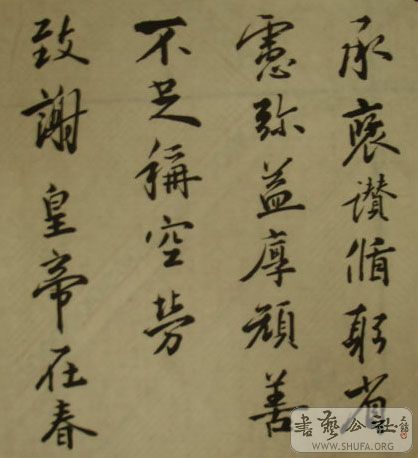 承褒讃循躬省
慮弥益厚顔善
不足稱空勞
致謝皇帝在春
書藝公社
WWW.SHUFA.ORG